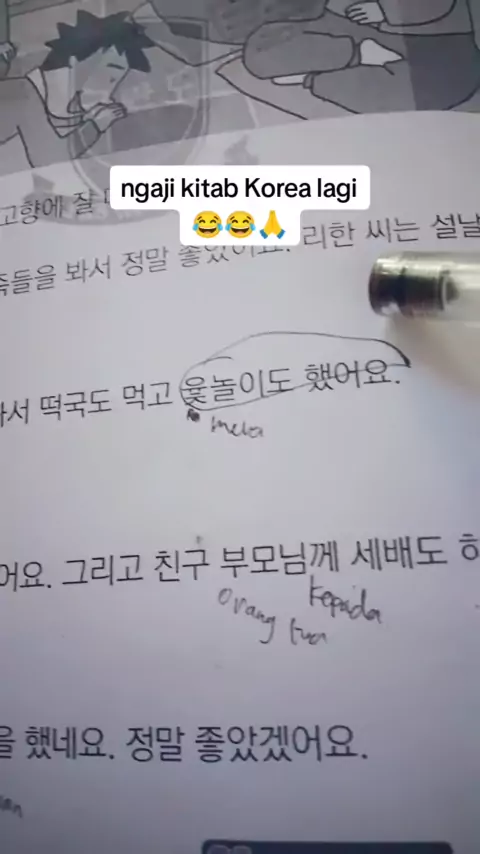 고향에 잘
ngaji kitab Korea lagi
😂😂🙏
족들을 봐서 정말 좋았어요. 리한 씨는 설날
와서 떡국도 먹고 윷놀이도 했어요.
어요. 그리고 친구 부모님께 세배도 하
orang tua
kepada
을 했네요. 정말 좋았겠어요.